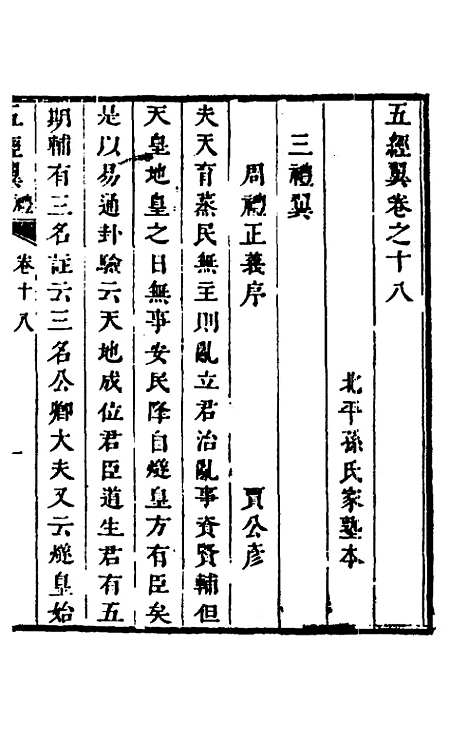 五經翼卷之十八
北平孫氏家塾本
三禮翼
周禮正義序 賈公彥
夫天育蒸民無主則亂立君治亂事資賢輔但
天皇地皇之日無事安民降自燧皇方有臣矣
是以易通卦驗云天地成位君臣道生君有五
期輔有三名註云三名公卿大夫又云燧皇始
五經翼 禮 卷十八 一